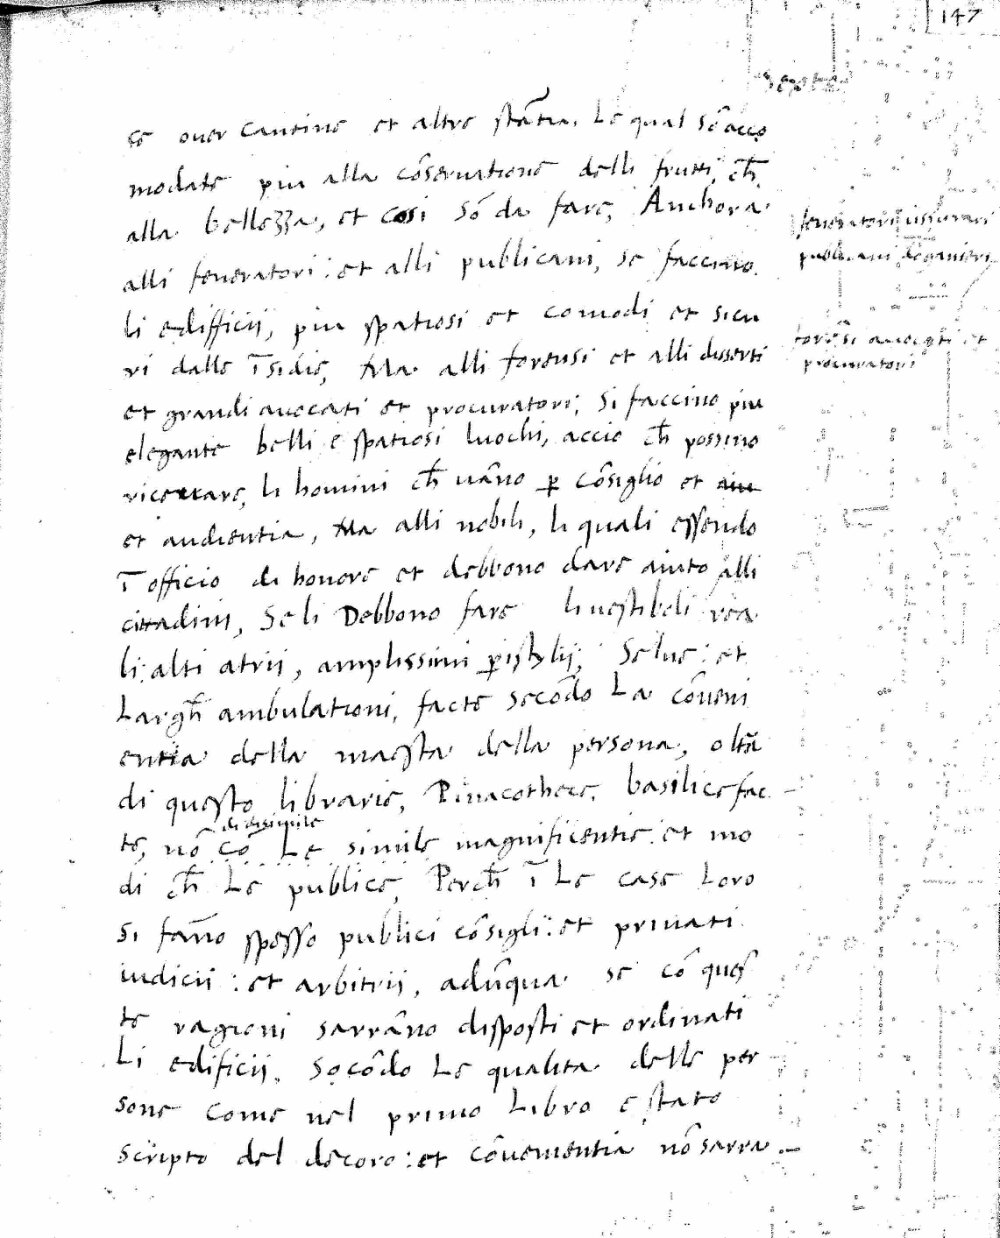 147
sexto
ce over Cantine et altre stātia. Le qual sō acco
modate piu alla cōservatione delli frutti, ch̄
alla bellezza, et cosi sō da fare, Anchora
alli feneratori: et alli publicani, se faccino
feneratori usurari
publicani
li edifficii, piu spatiosi et comodi et sicu
ri dalle īsidie, Ma alli forensi et alli diserti
forēsi avocati et
procuratori
et grandi avocati et procuratori, si faccino piu
elegante belli e spatiosi luochi, accio ch̄ possino
ricettare, li homini ch̄ vāno p cōsiglio et aiu
et audientia, Ma alli nobili, li quali essendo
ī officio di honore et debbono dare aiuto alli
cittadini, Se li Debbono fare li vestiboli rea
li: alti atrii, amplissimi pistylij, Selve: et
Largh̄ ambulationi, facte secōdo La cōveni
entia della maesta della persona, oltā
di questo librarie, Pinacothece, basilice fac
di disimile
te, nō cō Le simile magnificentie: et mo
di ch̄ Le publice, Perch̄ ī Le case Loro
si fāno spesso publici cōsigli: et privati
iudicii: et arbitrii, adūqua se cō ques
te ragioni sarrāno disposti et ordinati
Li edificii. Secōdo Le qualita delle per
sone Come nel primo Libro e stato
scripto del decoro: et cōvenientia nō sarra